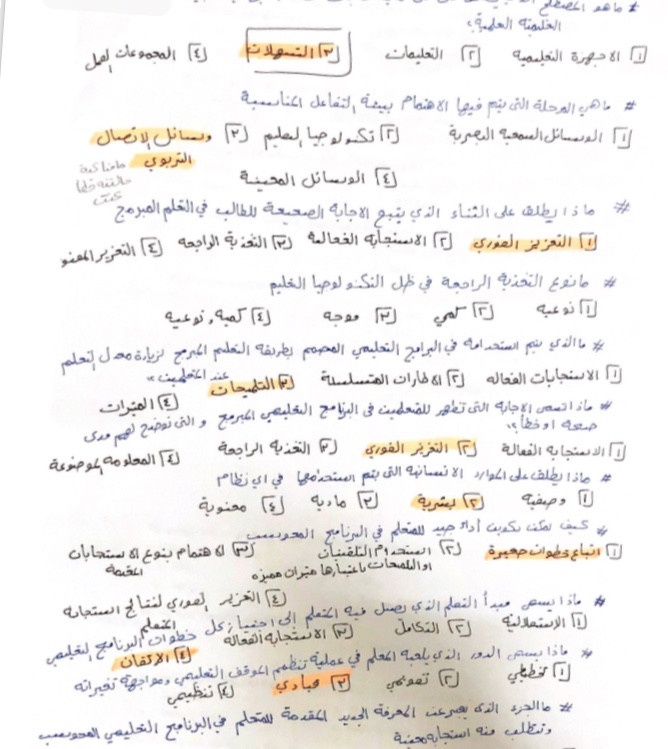 # ماهو المصطلح
التعليمية العلمية؟
١ الاجهزة التعليميه ٢ التعليمات ٣ التسهيلات ٤ المجموعات العمل
# ماهي المرحلة التى يتم فيها الاهتمام ببيئة التفاعل المناسبة
١ الوسائل السمعيه البصرية ٢ تكنولوجيا التعليم ٣ وسائل الاتصال
التربوي
٤ الوسائل المعينة
# ماذا يطلق على الثناء الذي يتبع الاجابة الصحيحة للطالب في التعلم المبرمج
١ التعزيز الفوري ٢ الاستجابه الفعالة ٣ التغذية الراجعه ٤ التعزيز المعنو
# مانوع التغذية الراجعة في ظل التكنولوجيا التعليم
١ نوعيه ٢ كمي ٣ موجه ٤ كميه ونوعيه
# ماالذي يتم استخدامه في البرامج التعليمي المصمم بطريقة التعليم المبرمج لزيادة معدل التعلم
عند المتعلمين
١ الاستجابات الفعاله ٢ الاطارات المتسلسلة ٣ التلميحات ٤ المثيرات
# ماذا تسمى الاجابه التى تظهر للمتعلمين فى البرنامج التعليمي المبرمج والتى توضح لهم مدى
صحة او خطأ؟
١ الاستجابه الفعالة ٢ التعزيز الفوري ٣ التغذية الراجعة ٤ المعلومه الموضوعة
# ماذا يطلق على الموارد الانسانيه التى يتم استخدامها في اي نظام
١ وصفيه ٢ بشرية ٣ ماديه ٤ معنوية
# كيف يمكن تكوين أداء جيد للمتعلم في البرنامج المحوسب
١ اتباع خطوات صغيرة ٢ استخدام التلقينات ٣ الاهتمام بنوع الاستجابات
او التلميحات باعتبارها مثيرات مميزه
٤ التعزيز الفوري لنتائج استجابة
المتعلم
# ماذا يسمى مبدأ التعلم الذي يصل فيه المتعلم إلى اجتياز كل خطوات البرنامج التعليمي
١ الاستقلالية ٢ التكامل ٣ الاستجابة الفعالة ٤ الاتقان
# ماذا يسمى الدور الذي يلعبه المعلم في عملية تنظيم الموقف التعليمي ومواجهة تغيراته
١ تخطيطي ٢ تقويمي ٣ قيادي ٤ تنظيمي
# ماالجزء الذي يعبر عن المعرفة الجديد المقدمة للمتعلم في البرنامج التعليمي المحوسب
وتتطلب منه استجابة معينة